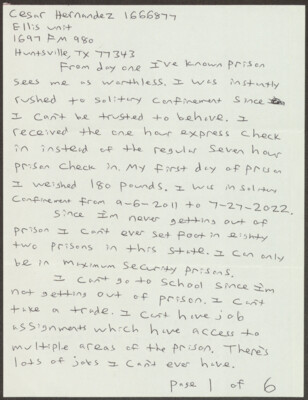 Cesar Hernandez 1666877
Ellis unit
1697 FM 980
Huntsville, TX 77343
From day one I've known prison
sees me as worthless. I was instantly
rushed to solitary confinement since
I can't be trusted to behave. I
received the one hour express check
in instead of the regular seven hour
prison check in. My first day of prison
I weighed 180 pounds. I was in solitary
confinement from 9-6-2011 to 7-27-2022.
Since I'm never getting out of
prison I can't ever set foot in eighty
two prisons in this state. I can only
be in maximum security prisons.
I can't go to school since I'm
not getting out of prison. I can't
take a trade. I can't have job
assignments which have access to
multiple areas of the prison. There's
lots of jobs I can't ever have.
page 1 of 6